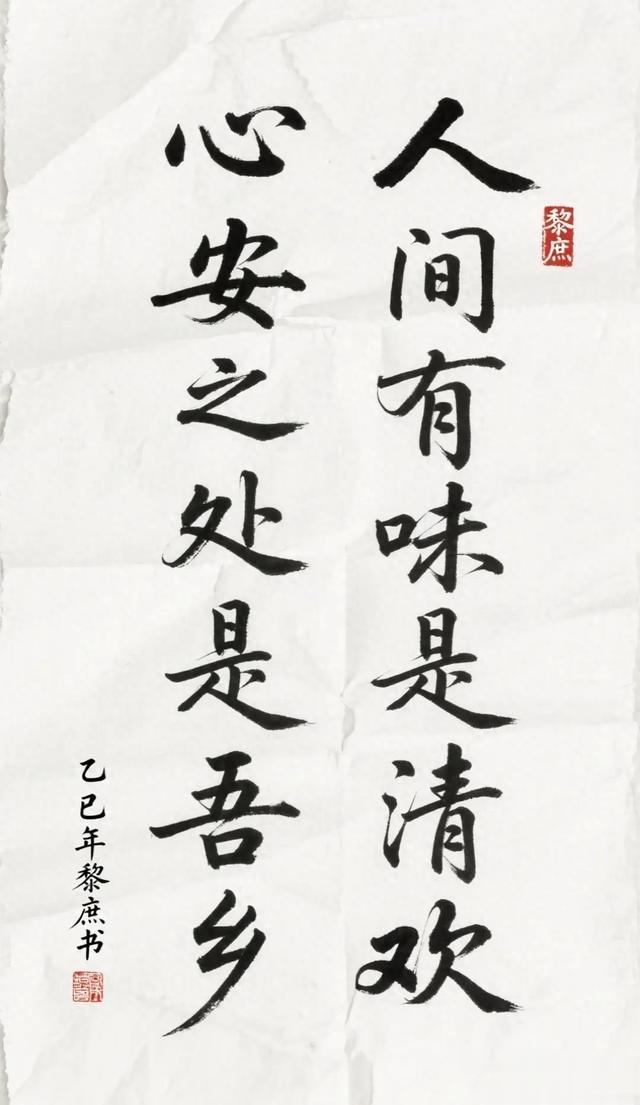 人间有味是清欢
心安之处是吾乡
乙巳年黎庶书
黎庶